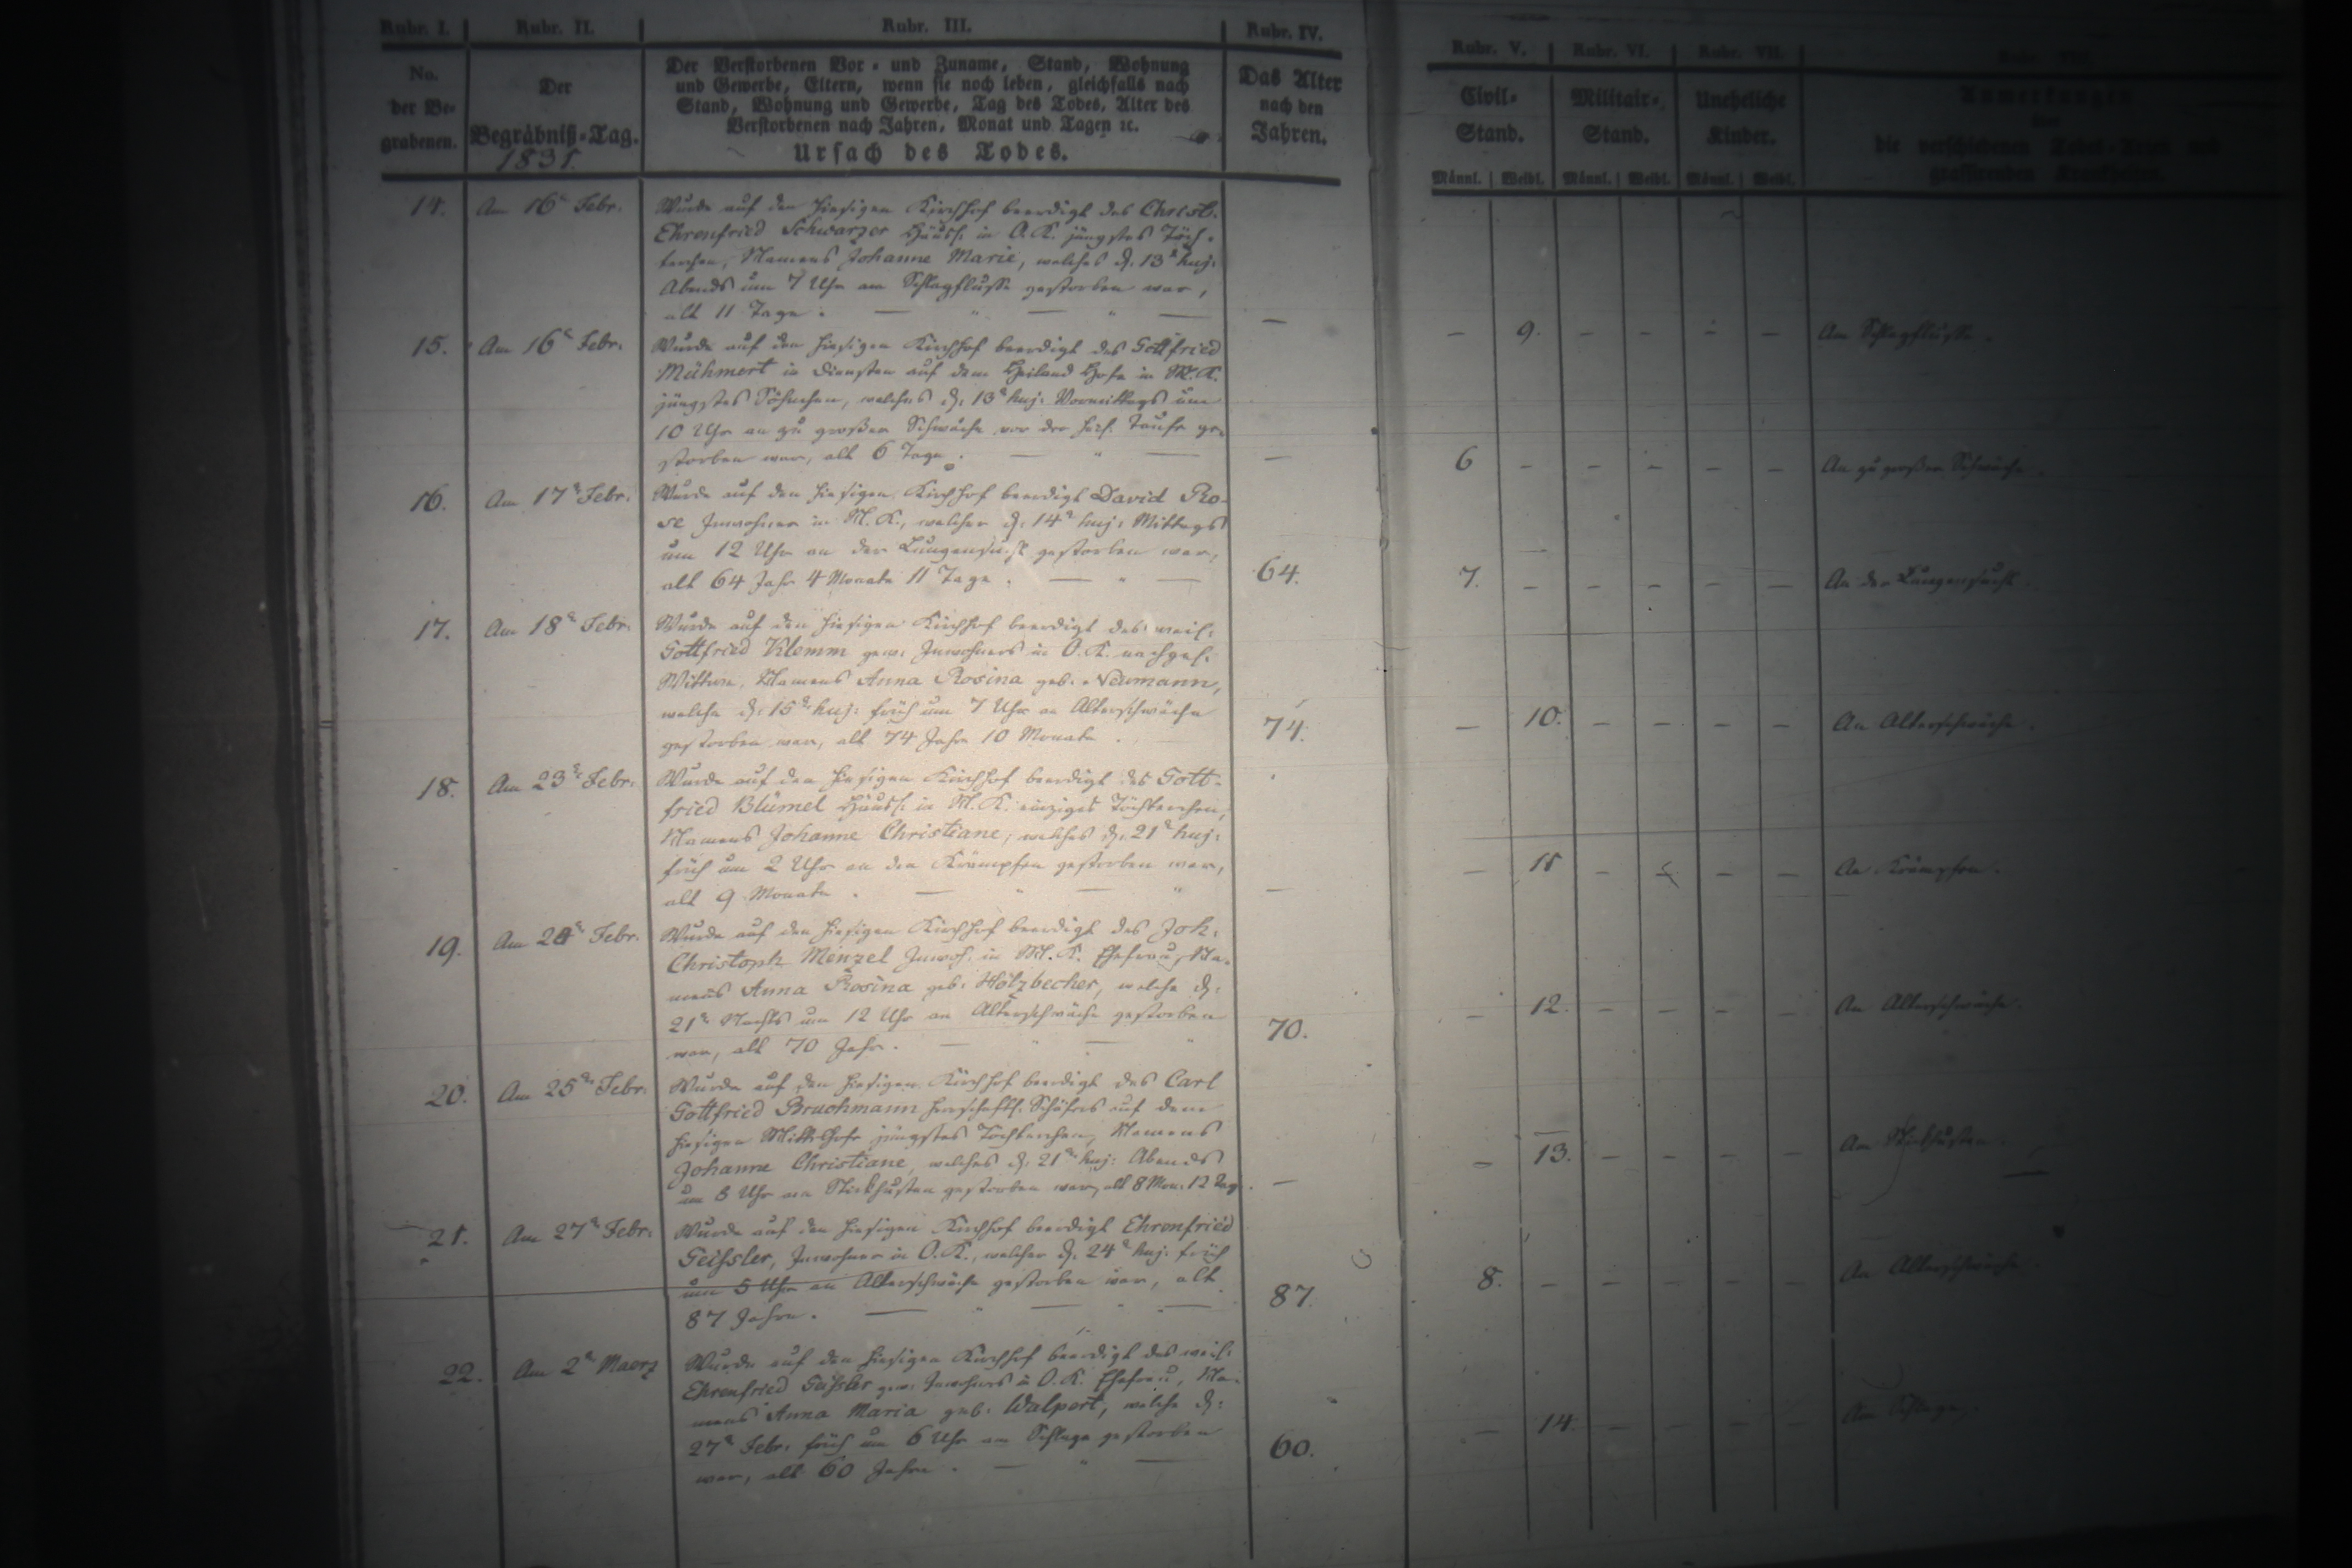 Rubr. I.
Rubr. II.
Rubr. III.
Rubr. IV.
Rubr. V.
Rubr. VI.
Rubr. VII.
No.
der Be-
grabenen.
Der
Begräbniß-Tag.
1831.
Der Verstorbenen Vor- und Zuname, Stand, Wohnung
und Gewerbe, Eltern, wenn sie noch leben, gleichfalls nach
Stand, Wohnung und Gewerbe, Tag des Todes, Alter des
Verstorbenen nach Jahren, Monat und Tagen ꝛc.
Ursach des Todes.
Das Alter
nach den
Jahren.
Civil-
Stand.
Militair-
Stand.
Uneheliche
Kinder.
Anmerkungen
über
die verschiedenen Todes-Arten und
grassirenden Krankheiten.
Männl. Weibl. Männl. Weibl. Männl. Weibl.
14. Am 16t Febr.
Wurde auf den hiesigen Kirchhof beerdigt des Christ.
Ehrenfried Schwarzer Häusl. in O. K. jüngstes Töch-
terchen, Namens Johanne Marie, welches d. 13t huj:
Abends um 7 Uhr am Schlagflusse gestorben war,
alt 11 Tage. — " — " —
— — 9. — — — — Am Schlagflusse.
15. Am 16t Febr.
Wurde auf den hiesigen Kirchhof beerdigt des Gottfried
Mühmert in Diensten auf dem Heiland Hofe in M. K.
jüngstes Söhnchen, welches d. 13t huj: Vormittags um
10 Uhr an zu großer Schwäche vor der heil. Taufe ge-
storben war, alt 6 Tage. — " —
— 6 — — — — — An zu großer Schwäche.
16. Am 17t Febr.
Wurde auf den hiesigen Kirchhof beerdigt David Ro-
se Inwohner in M. K., welcher d. 14t huj: Mittags
um 12 Uhr an der Lungensucht gestorben war,
alt 64 Jahr 4 Monate 11 Tage. — " —
64. 7. — — — — — An der Lungensucht.
17. Am 18t Febr.
Wurde auf den hiesigen Kirchhof beerdigt des weil:
Gottfried Klemm gew: Inwohners in O. K. nachgel:
Wittwe, Namens Anna Rosina geb: Neumann,
welche d. 15t huj: früh um 7 Uhr an Alterschwäche
gestorben war, alt 74 Jahre 10 Monate.
74. — 10. — — — — An Alterschwäche.
18. Am 23t Febr.
Wurde auf den hiesigen Kirchhof beerdigt des Gott-
fried Blümel Häusl. in M. K. einziges Töchterchen,
Namens Johanne Christiane, welches d. 21t huj:
früh um 2 Uhr an den Krämpfen gestorben war,
alt 9 Monate. — " — "
— — 11 — — — — An Krämpfen.
19. Am 24t Febr.
Wurde auf den hiesigen Kirchhof beerdigt des Joh:
Christoph Menzel Inwoh. in M. K. Ehefrau, Na-
mens Anna Rosina geb: Holzbecher, welche d:
21t Nachts um 12 Uhr an Alterschwäche gestorben
war, alt 70 Jahr. — " — "
70. — 12. — — — — An Alterschwäche.
20. Am 25t Febr.
Wurde auf den hiesigen Kirchhof beerdigt des Carl
Gottfried Bruchmann herschaftl. Schäfers auf dem
hiesigen Mittelhofe jüngstes Töchterchen, Namens
Johanne Christiane, welches d. 21t huj: Abends
um 8 Uhr am Stickhusten gestorben war, alt 8 Mon. 12 Tag.
— — 13. — — — — Am Stickhusten.
21. Am 27t Febr.
Wurde auf den hiesigen Kirchhof beerdigt Ehrenfried
Geissler, Inwohner in O. K., welcher d. 24t huj: früh
um 5 Uhr an Alterschwäche gestorben war, alt
87 Jahre. — " — " —
87. 8. — — — — — An Alterschwäche.
22. Am 2t Maerz
Wurde auf den hiesigen Kirchhof beerdigt des weil:
Ehrenfried Geissler gew: Inwohners in O. K. Ehefrau, Na-
mens Anna Maria geb: Walpert, welche d:
27t Febr: früh um 6 Uhr am Schlage gestorben
war, alt 60 Jahre. — " —
60. — 14. — — — — Am Schlage.